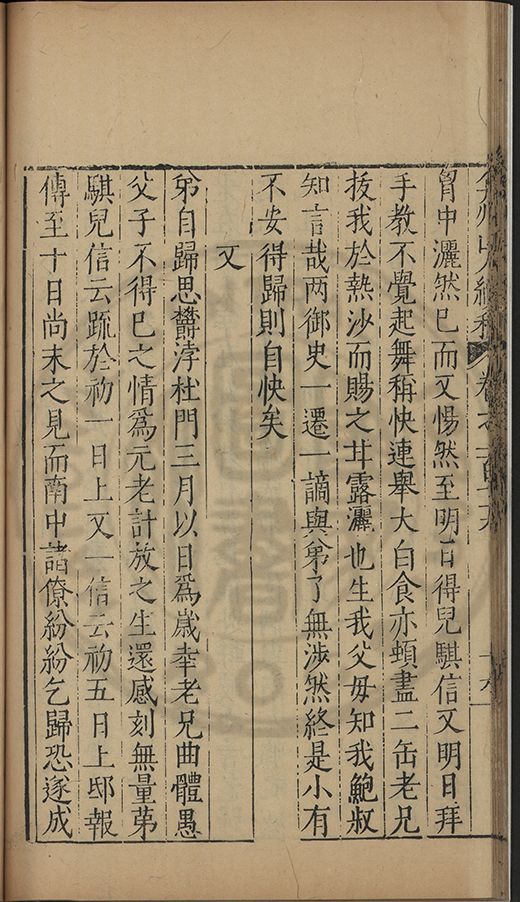 弇州山人續稿 卷之一百
胷中灑然巳而又惕然至明日得兒騏信又明日拜
手教不覺起舞稱快連舉大白食亦頓盡二缶老兄
拔我於熱沙而賜之甘露灑也生我父母知我鮑叔
知言哉两御史一遷一謫與弟了無涉然終是小有
不安得歸則自快矣
又
弟自歸思欝浡杜門三月以日爲歲幸老兄曲體愚
父子不得巳之情爲元老計放之生還感刻無量苐
騏兒信云䟽於初一日上又一信云初五日上邸報
傳至十日尚未之見而南中諸僚紛紛乞歸恐遂成